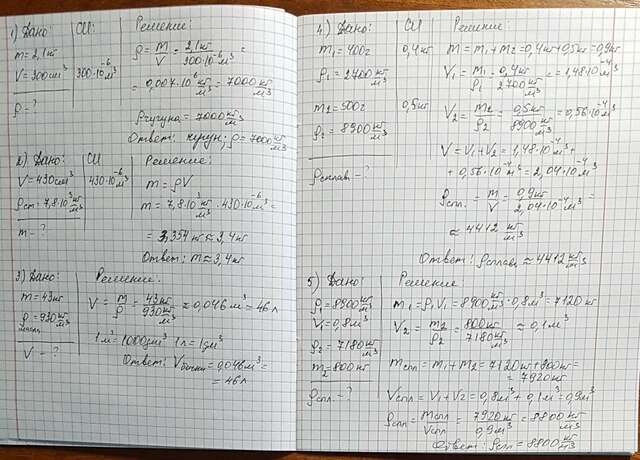 1) Дано:
СИ:
Решение:
m = 2,1 кг
V = 300 см³
300·10⁻⁶ м³
ρ = ?
ρ = m/V = 2,1 кг / 300·10⁻⁶ м³ =
= 0,007·10⁶ кг/м³ = 7000 кг/м³
ρ чугуна = 7000 кг/м³
Ответ: чугун; ρ = 7000 кг/м³
2) Дано:
СИ
Решение:
V = 430 см³
430·10⁻⁶ м³
ρст = 7,8·10³ кг/м³
m - ?
m = ρV
m = 7,8·10³ кг/м³ · 430·10⁻⁶ м³ =
= 3,354 кг ≈ 3,4 кг
Ответ: m ≈ 3,4 кг
3) Дано:
Решение:
m = 43 кг
ρ = 930 кг/м³
V - ?
V = m/ρ = 43 кг / 930 кг/м³ ≈ 0,046 м³ = 46 л
1 м³ = 1000 дм³ 1 л = 1 дм³
Ответ: V бочки = 0,046 м³ =
= 46 л
4) Дано:
СИ
Решение:
m₁ = 400 г
0,4 кг
ρ₁ = 2700 кг/м³
m₂ = 500 г
0,5 кг
ρ₂ = 8900 кг/м³
ρсплав - ?
m = m₁ + m₂ = 0,4 кг + 0,5 кг = 0,9 кг
V₁ = m₁/ρ₁ = 0,4 кг / 2700 кг/м³ = 1,48·10⁻⁴ м³
V₂ = m₂/ρ₂ = 0,5 кг / 8900 кг/м³ = 0,56·10⁻⁴ м³
V = V₁ + V₂ = 1,48·10⁻⁴ м³ +
+ 0,56·10⁻⁴ м³ = 2,04·10⁻⁴ м³
ρспл. = m/V = 0,9 кг / 2,04·10⁻⁴ м³ =
≈ 4412 кг/м³
Ответ: ρсплав ≈ 4412 кг/м³
5) Дано:
Решение
ρ₁ = 8900 кг/м³
V₁ = 0,8 м³
ρ₂ = 7180 кг/м³
m₂ = 800 кг
ρспл - ?
m₁ = ρ₁V₁ = 8900 кг/м³ · 0,8 м³ = 7120 кг
V₂ = m₂/ρ₂ = 800 кг / 7180 кг/м³ ≈ 0,1 м³
mспл = m₁ + m₂ = 7120 кг + 800 кг =
= 7920 кг
Vспл = V₁ + V₂ = 0,8 м³ + 0,1 м³ = 0,9 м³
ρспл = mспл/Vспл = 7920 кг / 0,9 м³ = 8800 кг/м³
Ответ: ρспл = 8800 кг/м³